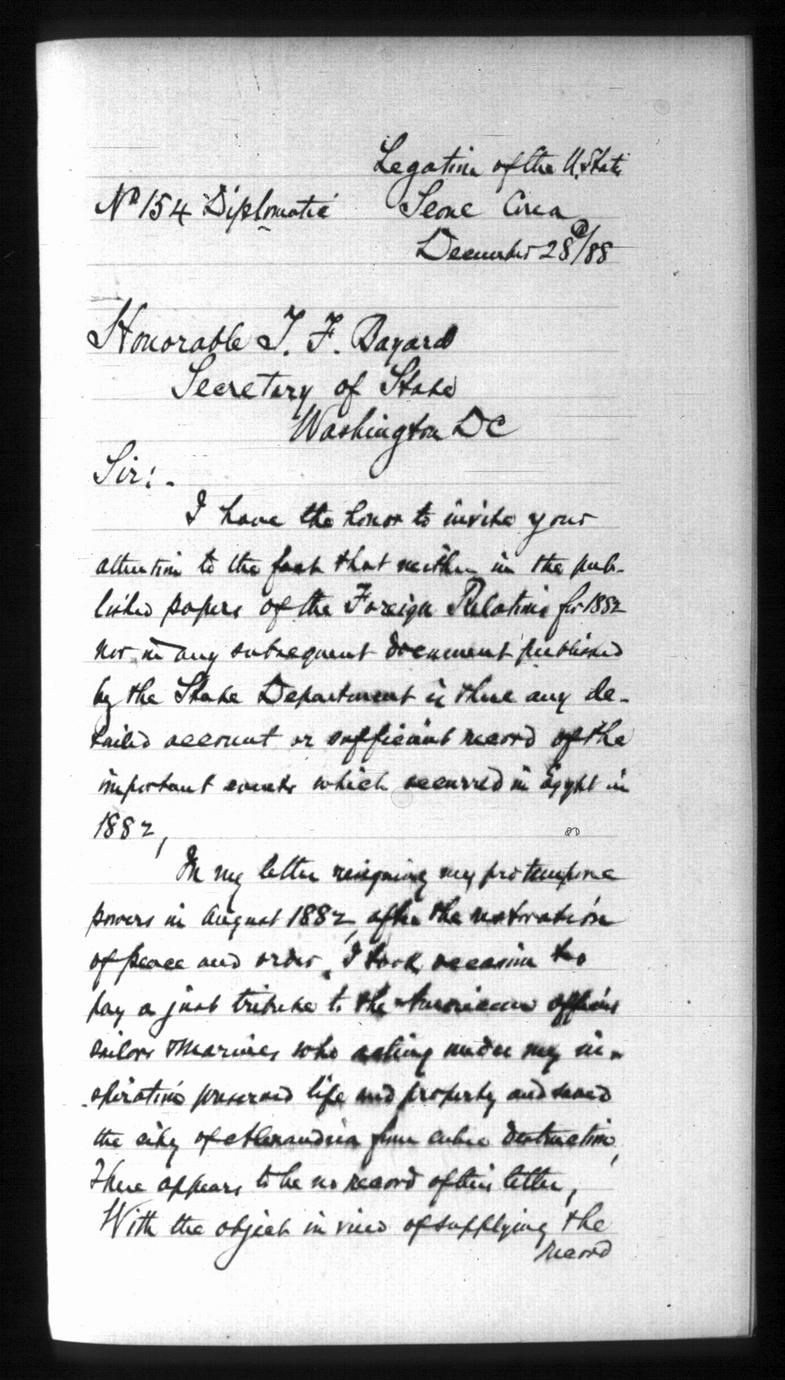 Legation of the U. States
No 154 Diplomatic Seoul Corea
December 28th/88
Honorable T. F. Bayard
Secretary of State
Washington DC
Sir:-
I have the honor to invite your
attention to the fact that neither in the pub-
lished papers of the Foreign Relations for 1882
nor in any subsequent document published
by the State Department is there any de-
tailed account or sufficient record of the
important events which occurred in Egypt in
1882,
In my letter resigning my pro tempore
powers in August 1882, after the restoration
of peace and order, I took occasion to
pay a just tribute to the American officers
sailors & marines who acting under my in-
spiration preserved life and property and saved
the city of Alexandria from entire destruction,
There appears to be no record of this letter,
With the object in view of supplying the
record